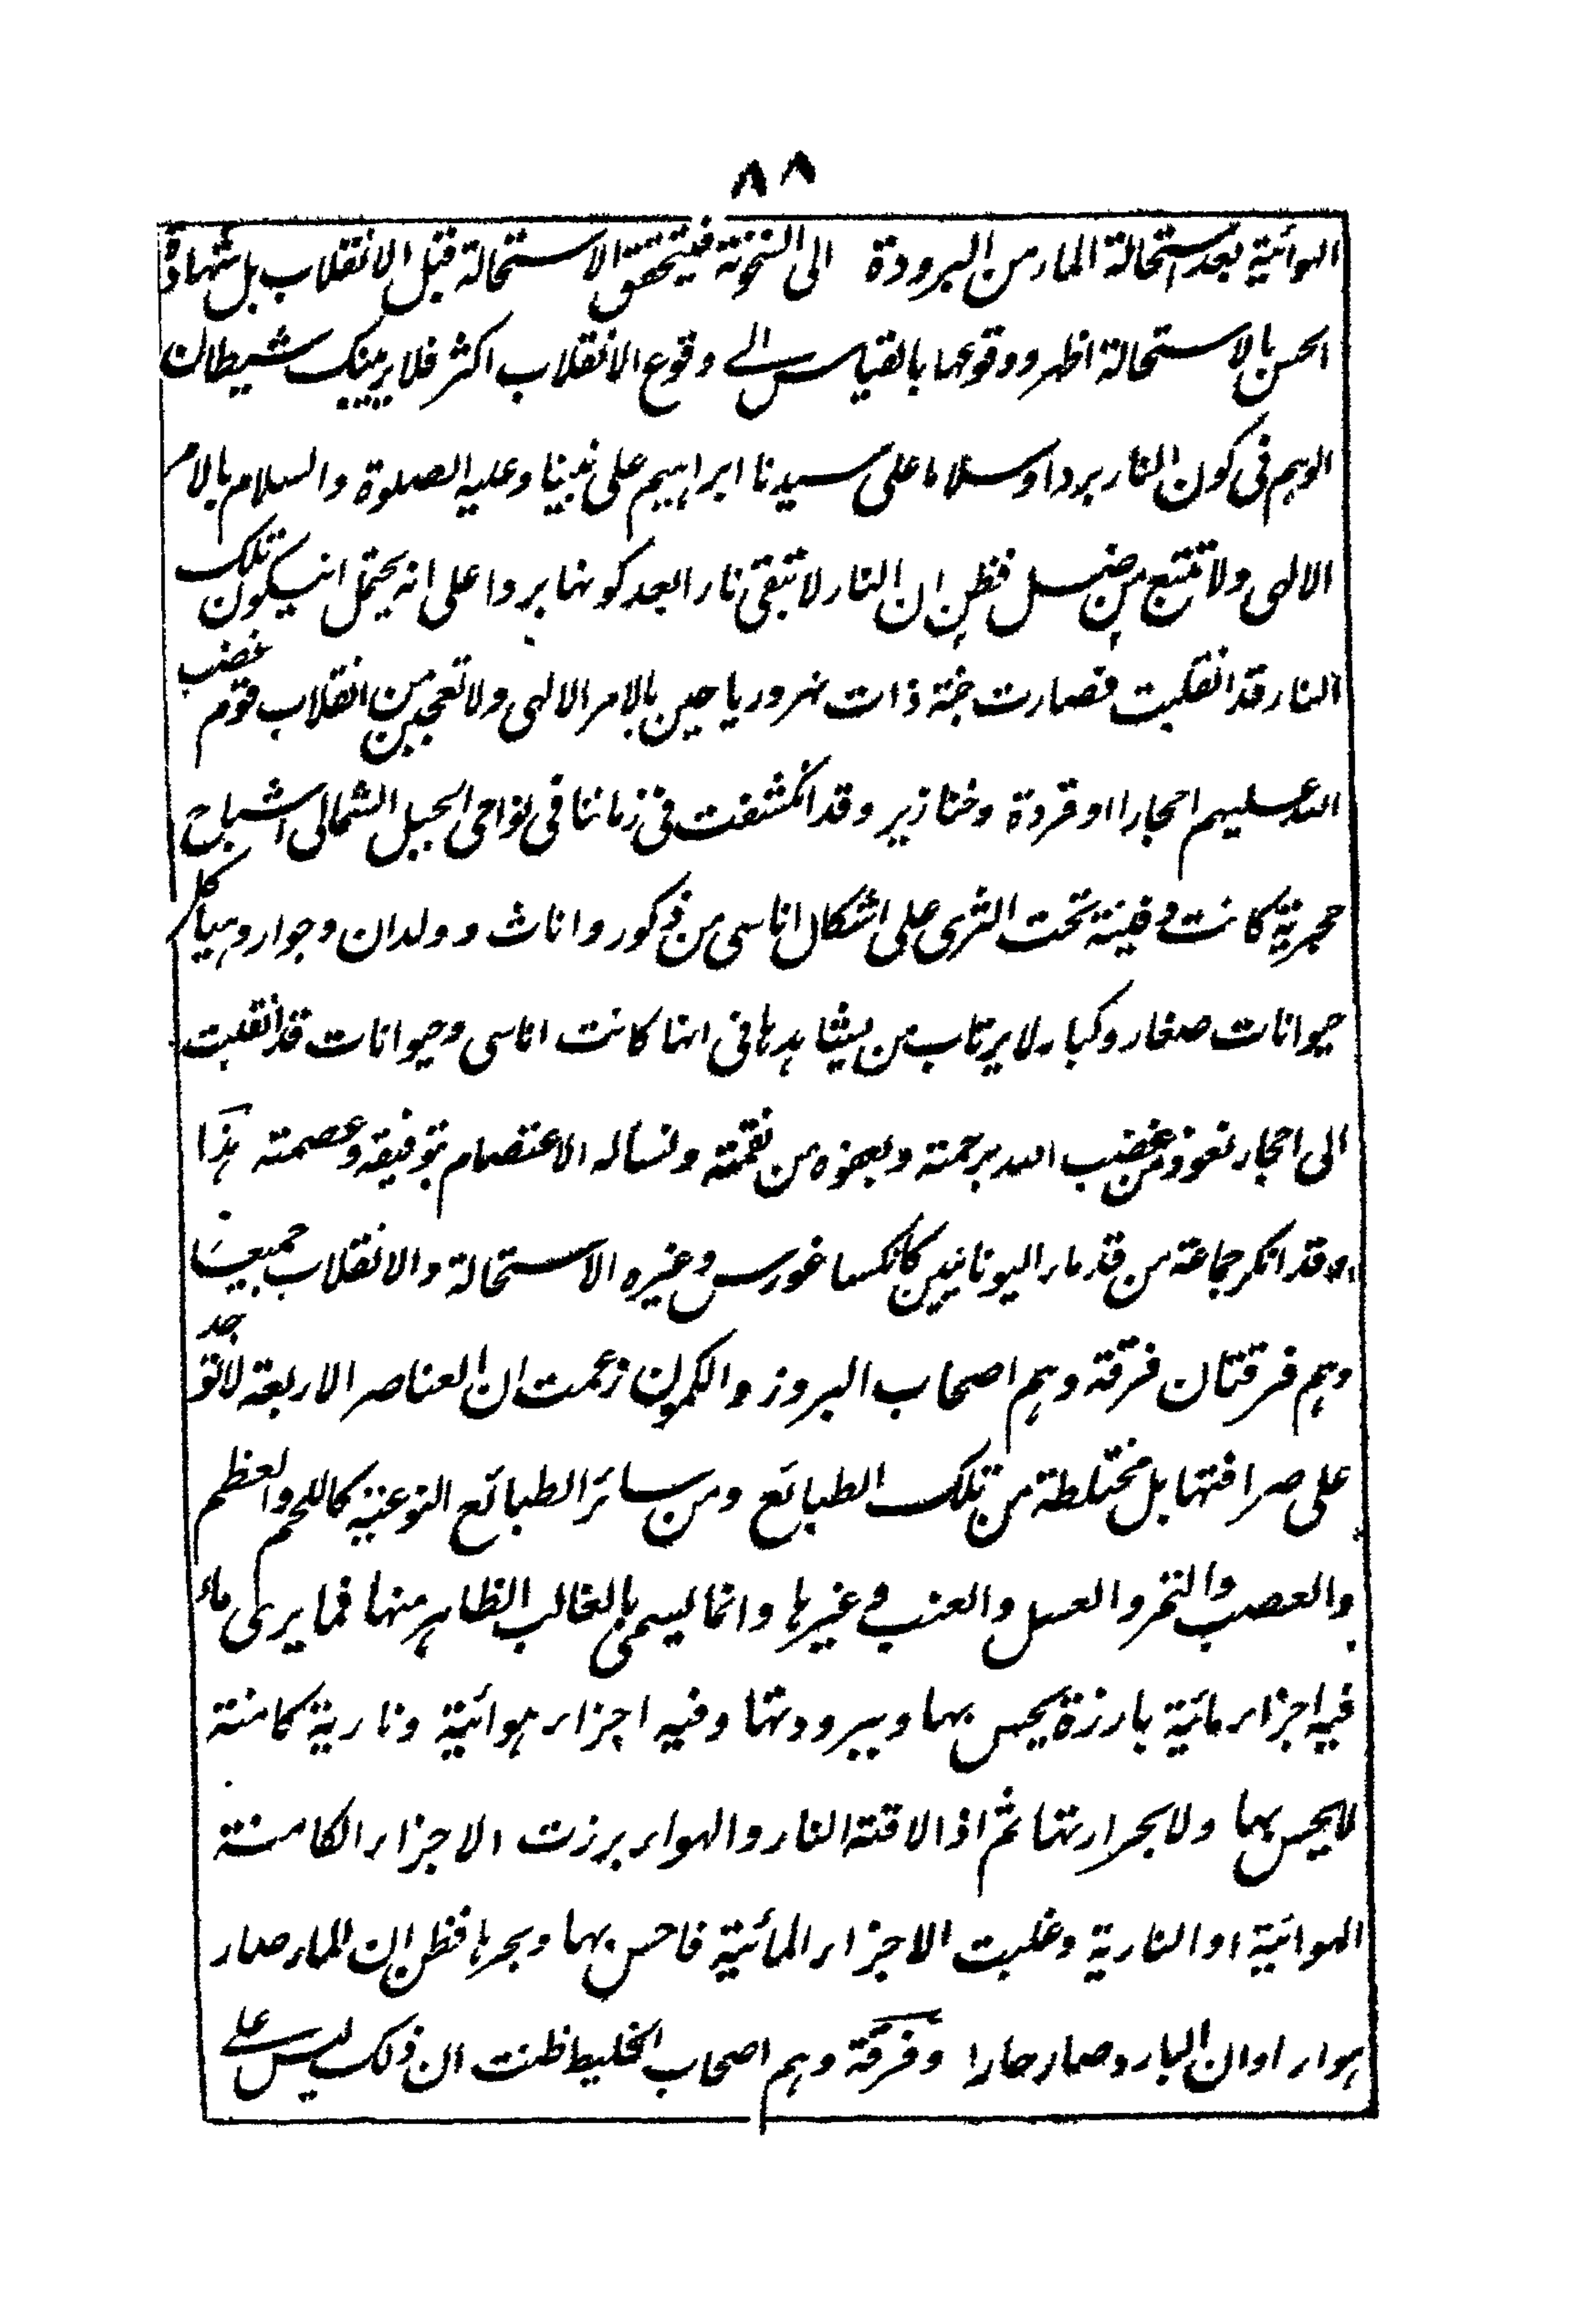 ٨٨
الهوائية بعد استحالة الماء من البرودة الى السخونة فيتحقق الاستحالة قبل الانقلاب بل شهادة
الحس بالاستحالة اظهر ووقوعها بالقياس الى وقوع الانقلاب اكثر فلا يريبنك شيطان
الوهم فى كون النار بردا وسلاما على سيدنا ابراهيم على نبينا وعليه الصلوة والسلام بالامر
الالهى ولا تتبع من ضل فظن ان النار لا تبقى نارا بعد كونها بردا على انه يحتمل انيكون تلك
النار قد انقلبت فصارت جنة ذات نهر ورياحين بالامر الالهى ولا تعجبن من انقلاب قوم غضب
الله عليهم احجارا او قردة وخنازير وقد انكشفت فى زماننا فى نواحى الجبل الشمالى اشباح
حجرية كانت دفينة تحت الثرى على اشكال اناسى من ذكور واناث وولدان وجوار وهياكل
حيوانات صغار وكبار لا يرتاب من يشاهدها فى انها كانت اناسى وحيوانات قد انقلبت
الى احجار نعوذ من غضب الله برحمته وبعفوه من نقمته ونسأله الاعتصام بتوفيقه وعصمته هذا
وقد انكر جماعة من قدماء اليونانيين كانكساغورس وغيره الاستحالة والانقلاب جميعا
وهم فرقتان فرقة وهم اصحاب البروز والكمون زعمت ان العناصر الاربعة لا توجد
على صرافتها بل مختلطة من تلك الطبائع ومن سائر الطبائع النوعية كاللحم والعظم
والعصب والتمر والعسل والعنب وغيرها وانما يسمى بالغالب الظاهر منها فما يرى ماء
فيه اجزاء مائية بارزة يحس بها وببرودتها وفيه اجزاء هوائية ونارية كامنة
لا يحس بها ولا بحرارتها ثم اذا لاقته النار والهواء برزت الاجزاء الكامنة
الهوائية او النارية وغلبت الاجزاء المائية فاحس بها وبحرها فظن ان الماء صار
هواء او ان البارد صار حارا وفرقة وهم اصحاب الخليط ظنت ان ذلك ليس على